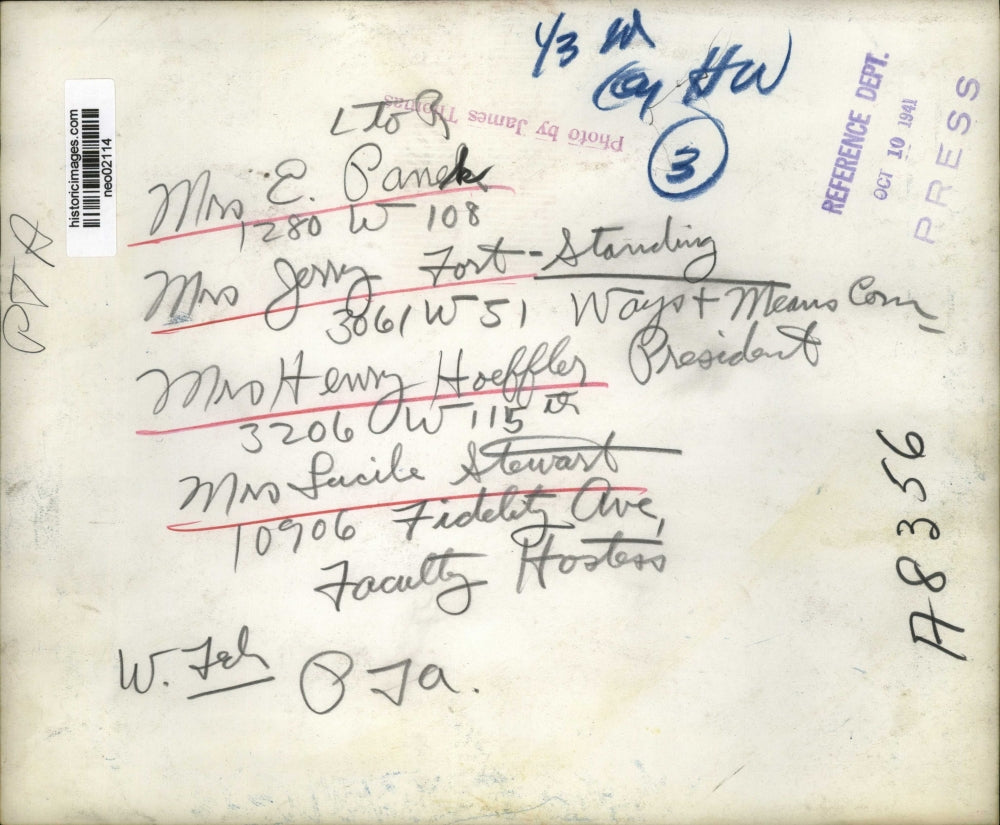 1/3
HW
3
historicimages.com
neo02114
Photo by James Thomas
REFERENCE DEPT.
OCT 10 1941
PRESS
L to R
Mrs E. Panek
1280 W 108
Mrs Jerry Fort - Standing
3061 W 51 Ways + Means Com
Mrs Henry Hoeffler President
3206 W 115 th
Mrs Lucile Stewart
10906 Fidelity Ave,
Faculty Hostess
W. Tech PTA.
PTA
A8356